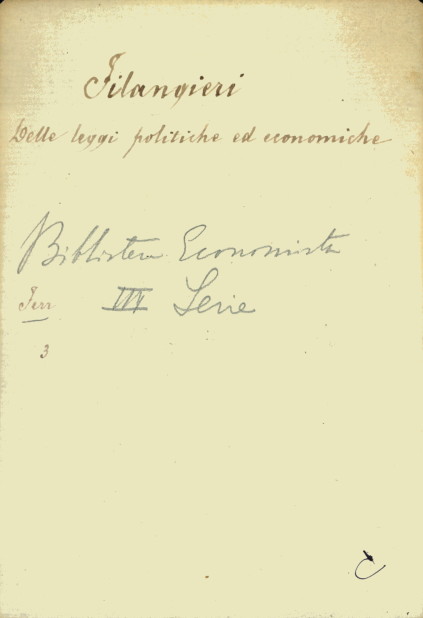 Filangieri
Delle leggi politiche ed economiche
Biblioteca Economista
III Serie
3